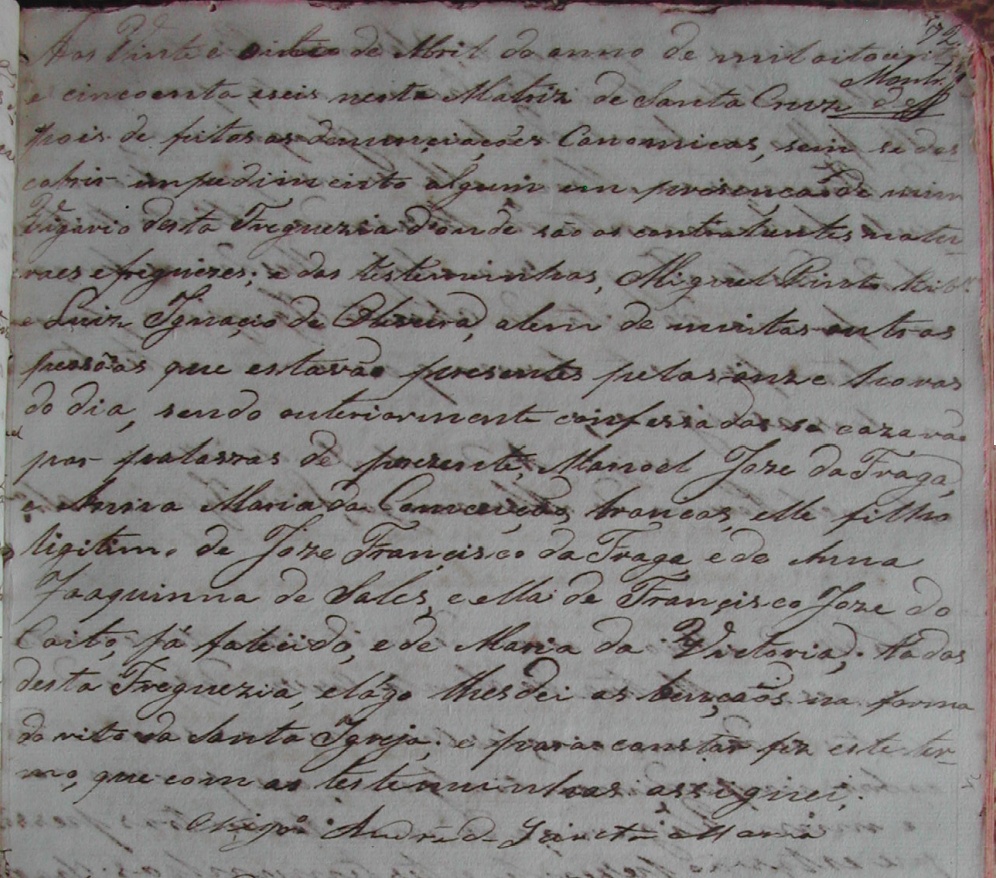 72
Aos Vinte e oito de Abril do anno de mil oitocentos
e cincoenta e seis nesta Matriz de Santa Cruz de
pois de feitas as denunciações Canonicas, sem se des-
cobrir impedimento algum em presenca de mim
Vigario desta Freguezia d'onde são os contratentes natu-
raes e freguezes; e das testemunhas, Miguel Pinto Rib.º
e Luiz Ignacio de Oliveira, alem de muitas outras
pessoas que estavão presentes pelas onze horas
do dia, sendo anteriormente confessados se cazarão
por palavras de prezente, Manoel Joze da Fraga,
e Anna Maria da Conceição, brancos, elle filho
ligitimo de Joze Francisco da Fraga e de Anna
Joaquinna de Sales, e ella de Francisco Joze do
Coito, já falicido, e de Maria da Victoria; todos
desta Freguezia, e lógo lhes dei as bençãos na forma
do rito da Santa Igreja; e para constar fiz este ter-
mo, que com as testemunhas assignei.